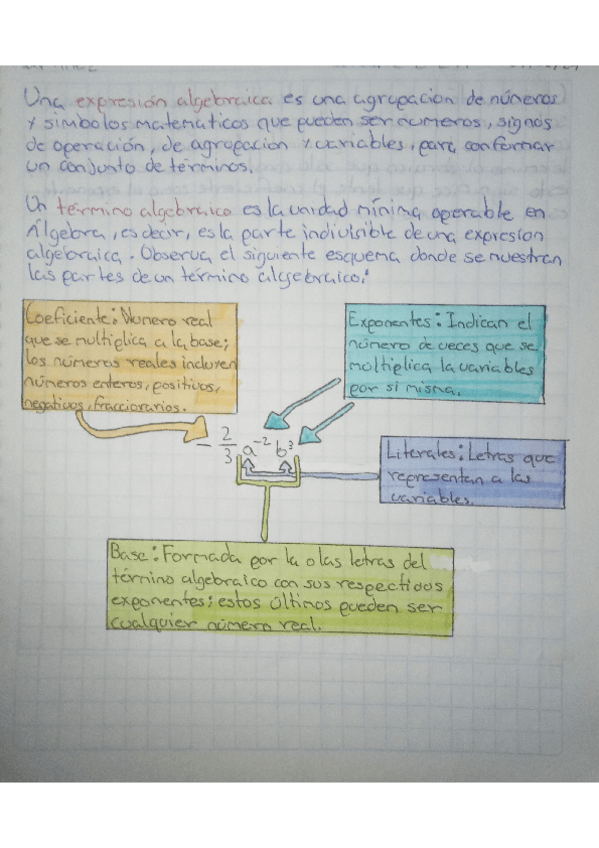 Una expresión algebraica es una agrupacion de números
y simbolos matematicos que pueden ser numeros, signos
de operación, de agrupacion y variables, para conformar
un conjunto de términos.
Un término algebraico es la unidad mínima operable en
Álgebra, es decir, es la parte indivisible de una expresion
algebraica. Observa el siguiente esquema donde se muestran
las partes de un término algebraico:
Coeficiente: Numero real
que se multiplica a la base;
los números reales incluyen
números enteros, positivos,
negativos, fraccionarios.
Exponentes: Indican el
número de veces que se
multiplica la variables
por si misma.
- 2/3 a⁻² b³
Literales: Letras que
representan a las
variables.
Base: Formada por la o las letras del
término algebraico con sus respectidos
exponentes; estos últimos pueden ser
cualquier número real.